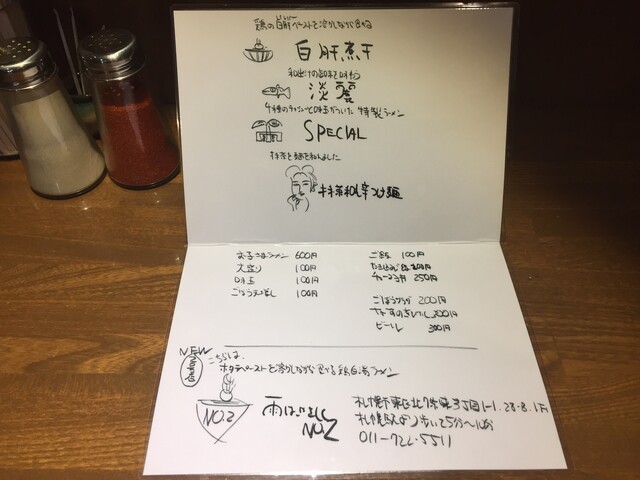 鶏の白肝ペーストを溶かしながら食べる
白肝煮干
和出汁の旨味を味わう
淡麗
4種のチャーシューと味玉がついた特製ラーメン
SPECIAL
抹茶を麺に練り込みました
抹茶和え辛つけ麺
お子さまラーメン 600円
大盛り 100円
味玉 100円
ごぼう天 100円
ご飯 100円
チャーシュー丼 250円
ごぼうサラダ 200円
200円
ビール 300円
NEW
こちらは、
ホタテペーストを溶かしながら食べる鶏白湯ラーメン
NO.2
雨は、やさしく No2
札幌市東区北7条東3丁目1-1.28-8.1F
札幌駅より歩いて5分〜10分
011-722-5511